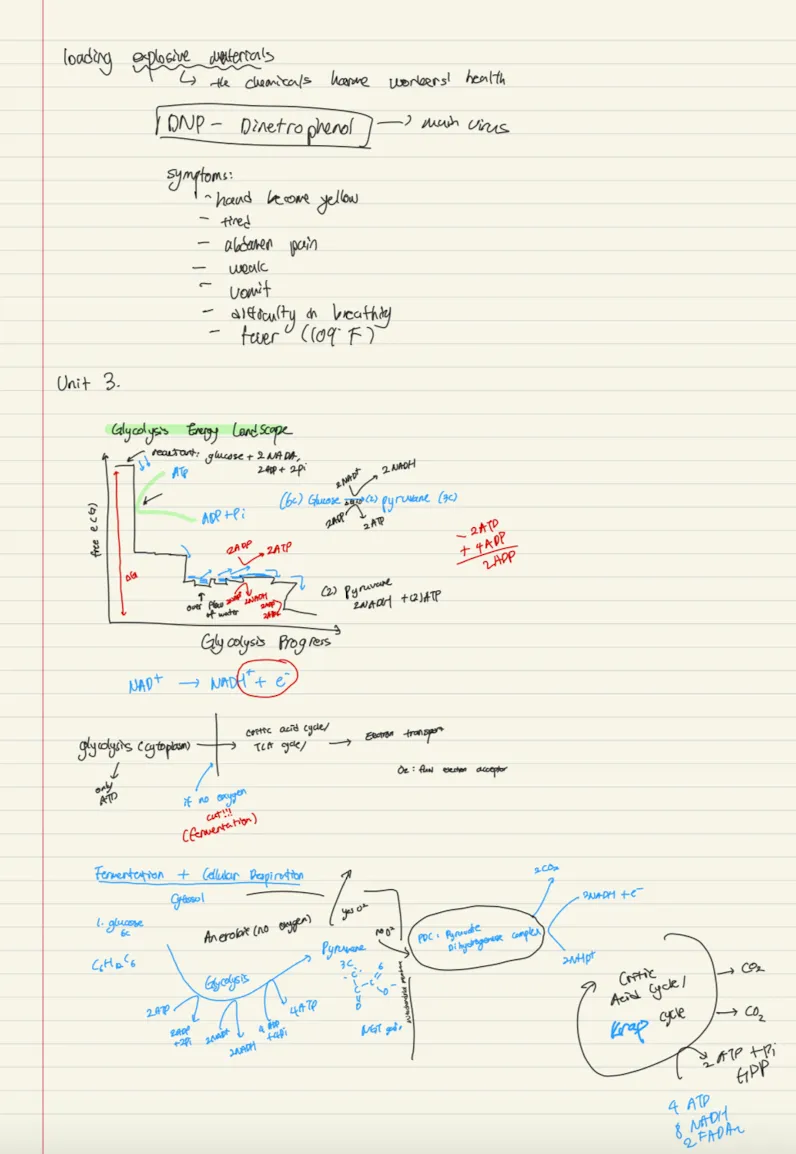 loading explosive materials
↳ the chemicals harme workers' health
DNP - Dinetrophenol → main virus
symptoms:
- hand become yellow
- tired
- abdomen pain
- weak
- vomit
- difficulty in breathing
- fever (109° F)
Unit 3.
Glycolysis Energy Landscape
reactant: glucose + 2NADA,
2ADP + 2Pi
ATP
ADP + Pi
free E (G)
ΔG
2NAD+
2 NADH
(6c) Glucose (2) pyruvane (3c)
2ADP
2ATP
- 2ATP
+ 4ADP
2ADP
2ADP
2ATP
2NADH
of water
(2) Pyruvane
2NADH + (2)ATP
Glycolysis Progress
NAD+ → NADH+ + e-
glycolysis (cytoplasm)
Critic acid cycle/
TCA cycle/
→ Electron transport
O2 : final electron acceptor
only
ATP
if no oxygen
cut!!!
(fermentation)
Fermentation + Cellular Respiration
Cytosol
Anerobic (no oxygen)
yes O2
no O2
1. glucose
6c
C6H12C6
Glycolysis
Pyruvane
3C
2ATP
2ADP
+ 2Pi
2NAD+
2NADH
4 ADP
+ 4Pi
4ATP
C
C
O
O-
NET gain,
PDC: Pyruvate
Dihydrogenase complex
2CO2
2NADH + e-
Critic
Acid Cycle/
Krap cycle
CO2
CO2
2 ATP + Pi
GDP
4 ATP
8 NADH
2 FADH2